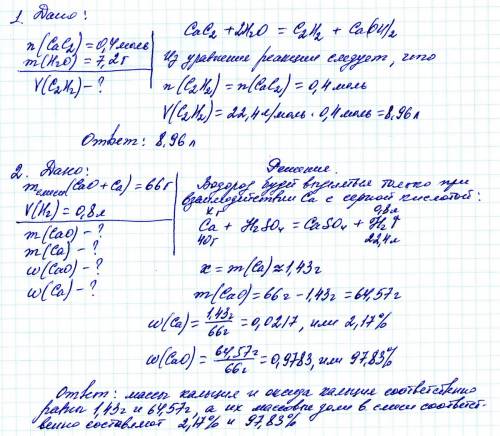 1. Дано:
n(CaC₂)=0,4 моль
m(H₂O)=7,2 г
V(C₂H₂)-?
CaC₂ + 2H₂O = C₂H₂ + Ca(OH)₂
Из уравнения реакции следует, что
n(C₂H₂) = n(CaC₂) = 0,4 моль
V(C₂H₂) = 22,4 л/моль · 0,4 моль = 8,96 л
Ответ: 8,96 л
2. Дано:
m смеси (CaO + Ca) = 66 г
V(H₂) = 0,8 л
m(CaO) - ?
m(Ca) - ?
w(CaO) - ?
w(Ca) - ?
Решение.
Водород будет выделяться только при
взаимодействии Ca с серной кислотой:
x г 0,8 л
Ca + H₂SO₄ = CaSO₄ + H₂↑
40 г 22,4 л
x = m(Ca) ≈ 1,43 г
m(CaO) = 66 г - 1,43 г = 64,57 г
w(Ca) = 1,43 г / 66 г = 0,0217, или 2,17%
w(CaO) = 64,57 г / 66 г = 0,9783, или 97,83%
Ответ: массы кальция и оксида кальция соответственно
равны 1,43 г и 64,57 г, а их массовые доли в смеси соответст-
венно составляют 2,17% и 97,83%